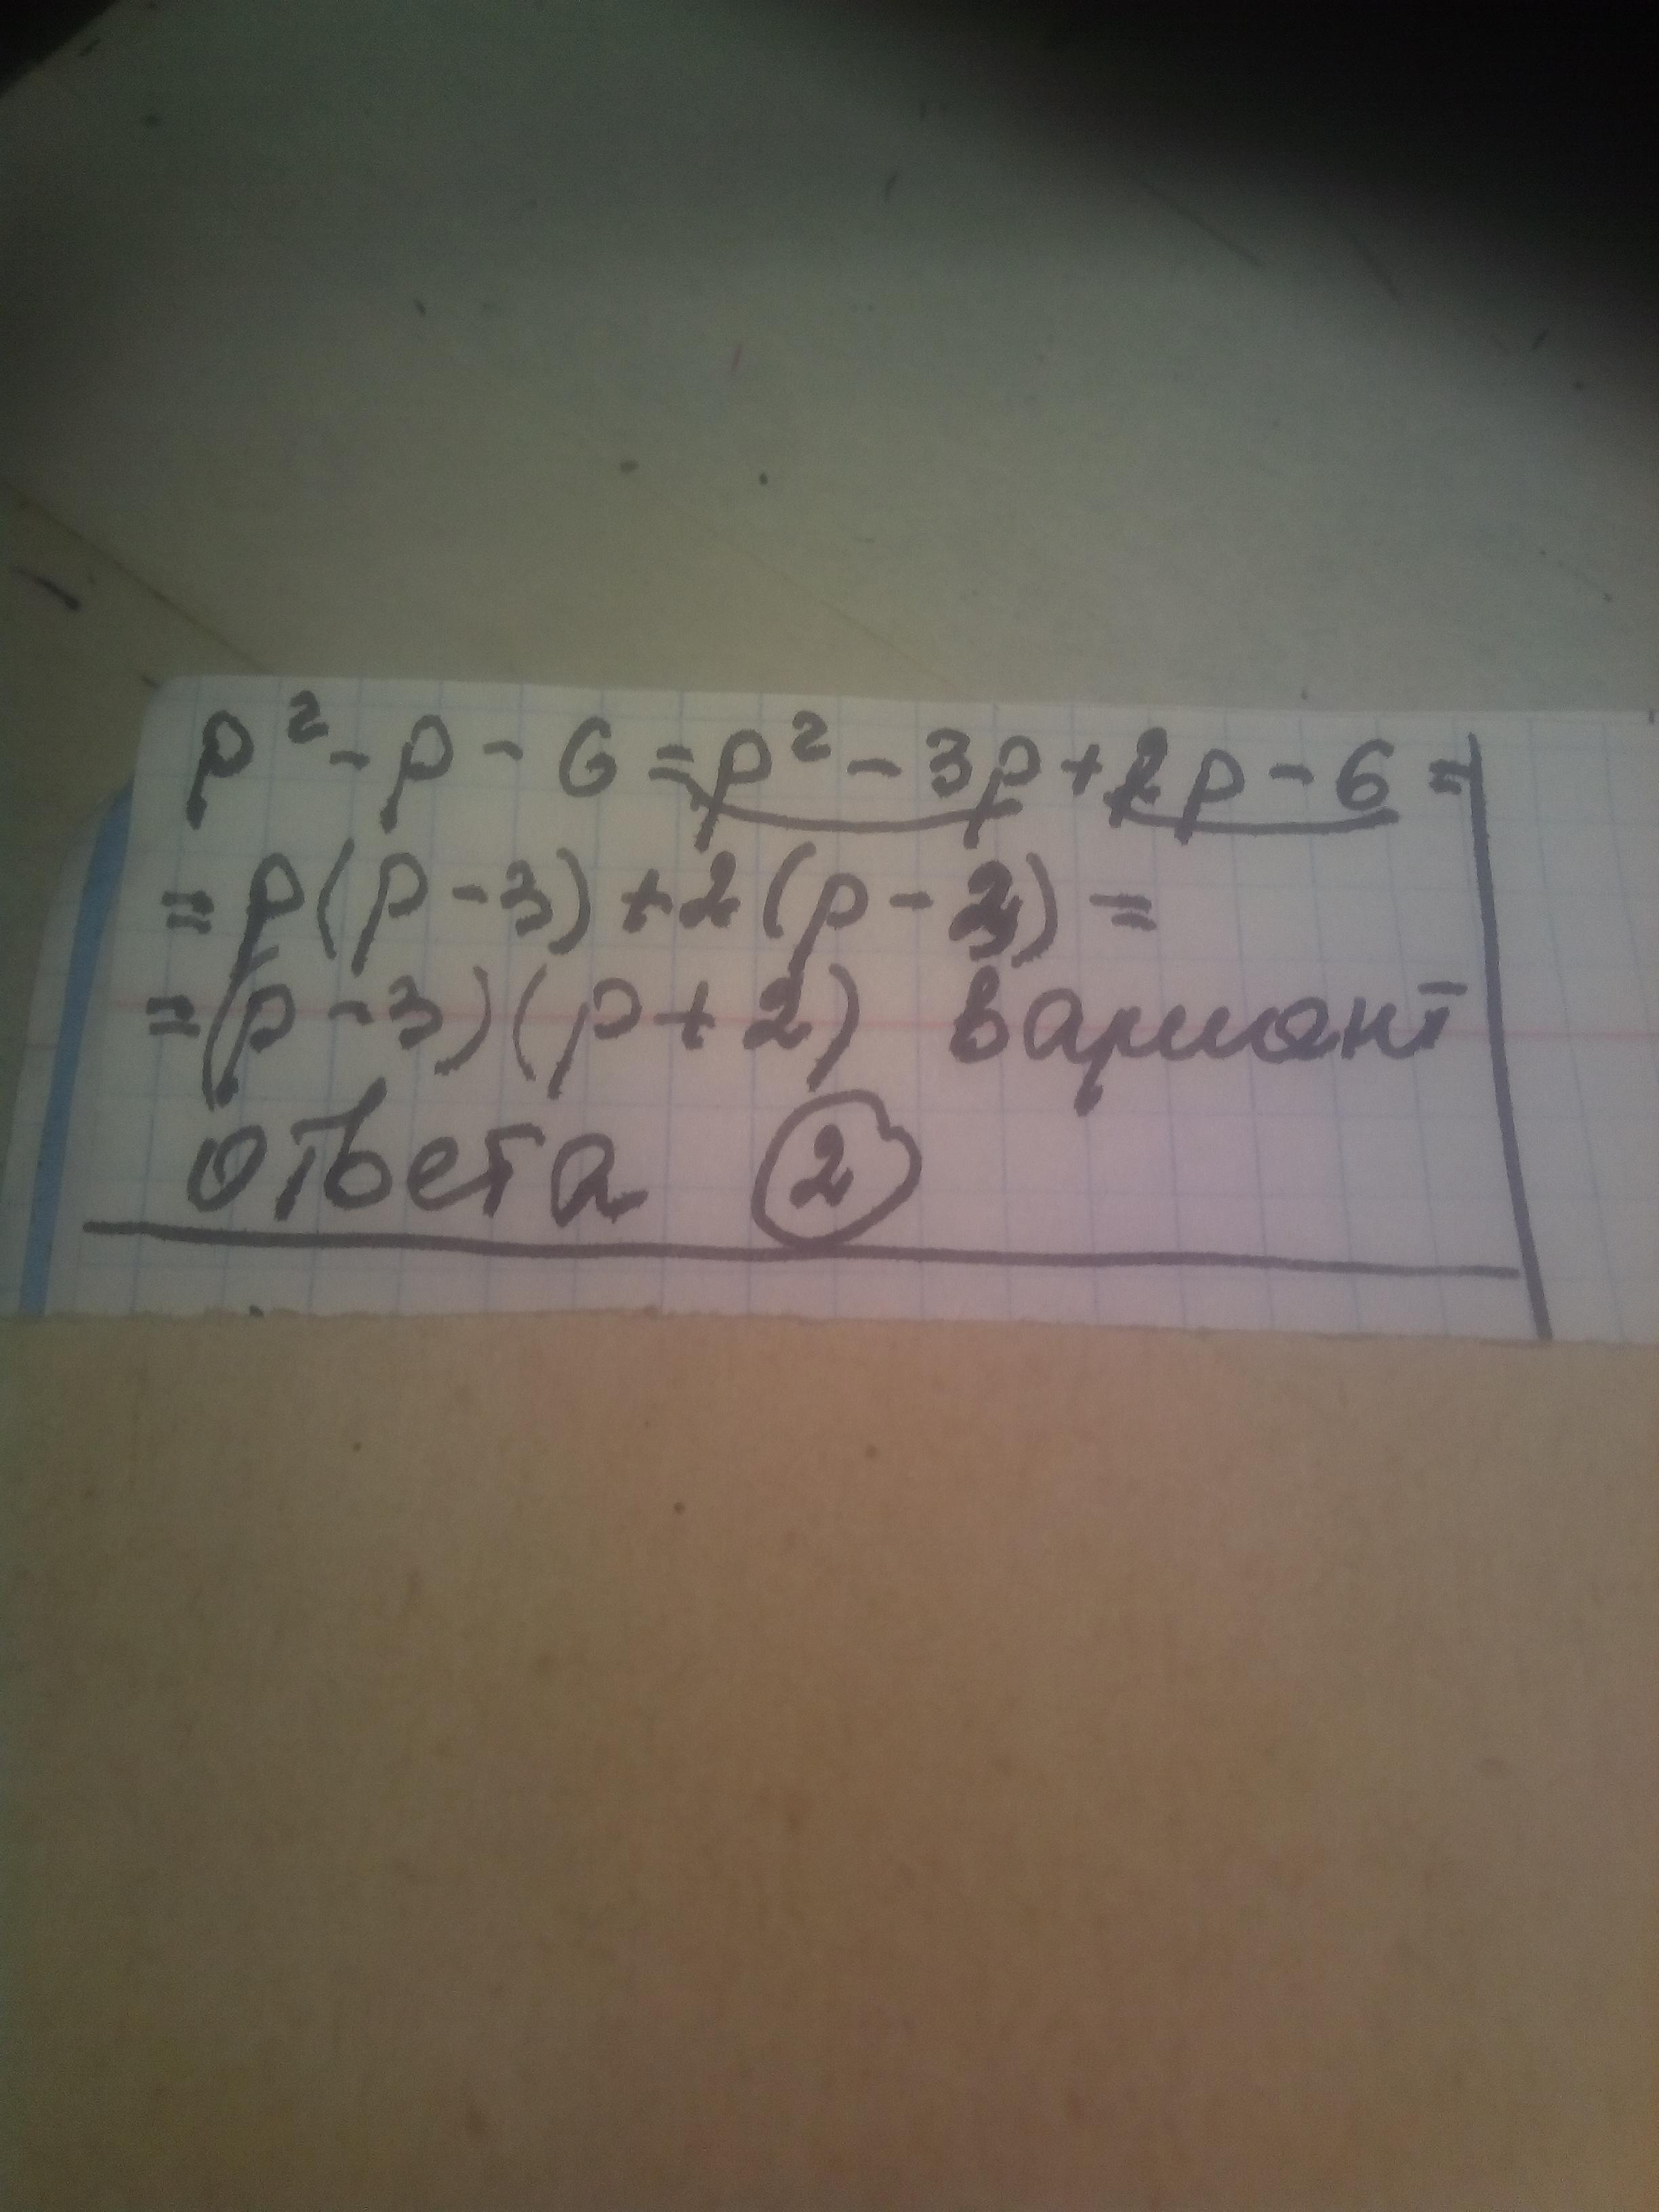 p² - p - 6 = p² - 3p + 2p - 6 =
= p(p - 3) + 2(p - 3) =
= (p - 3)(p + 2) вариант
ответа 2